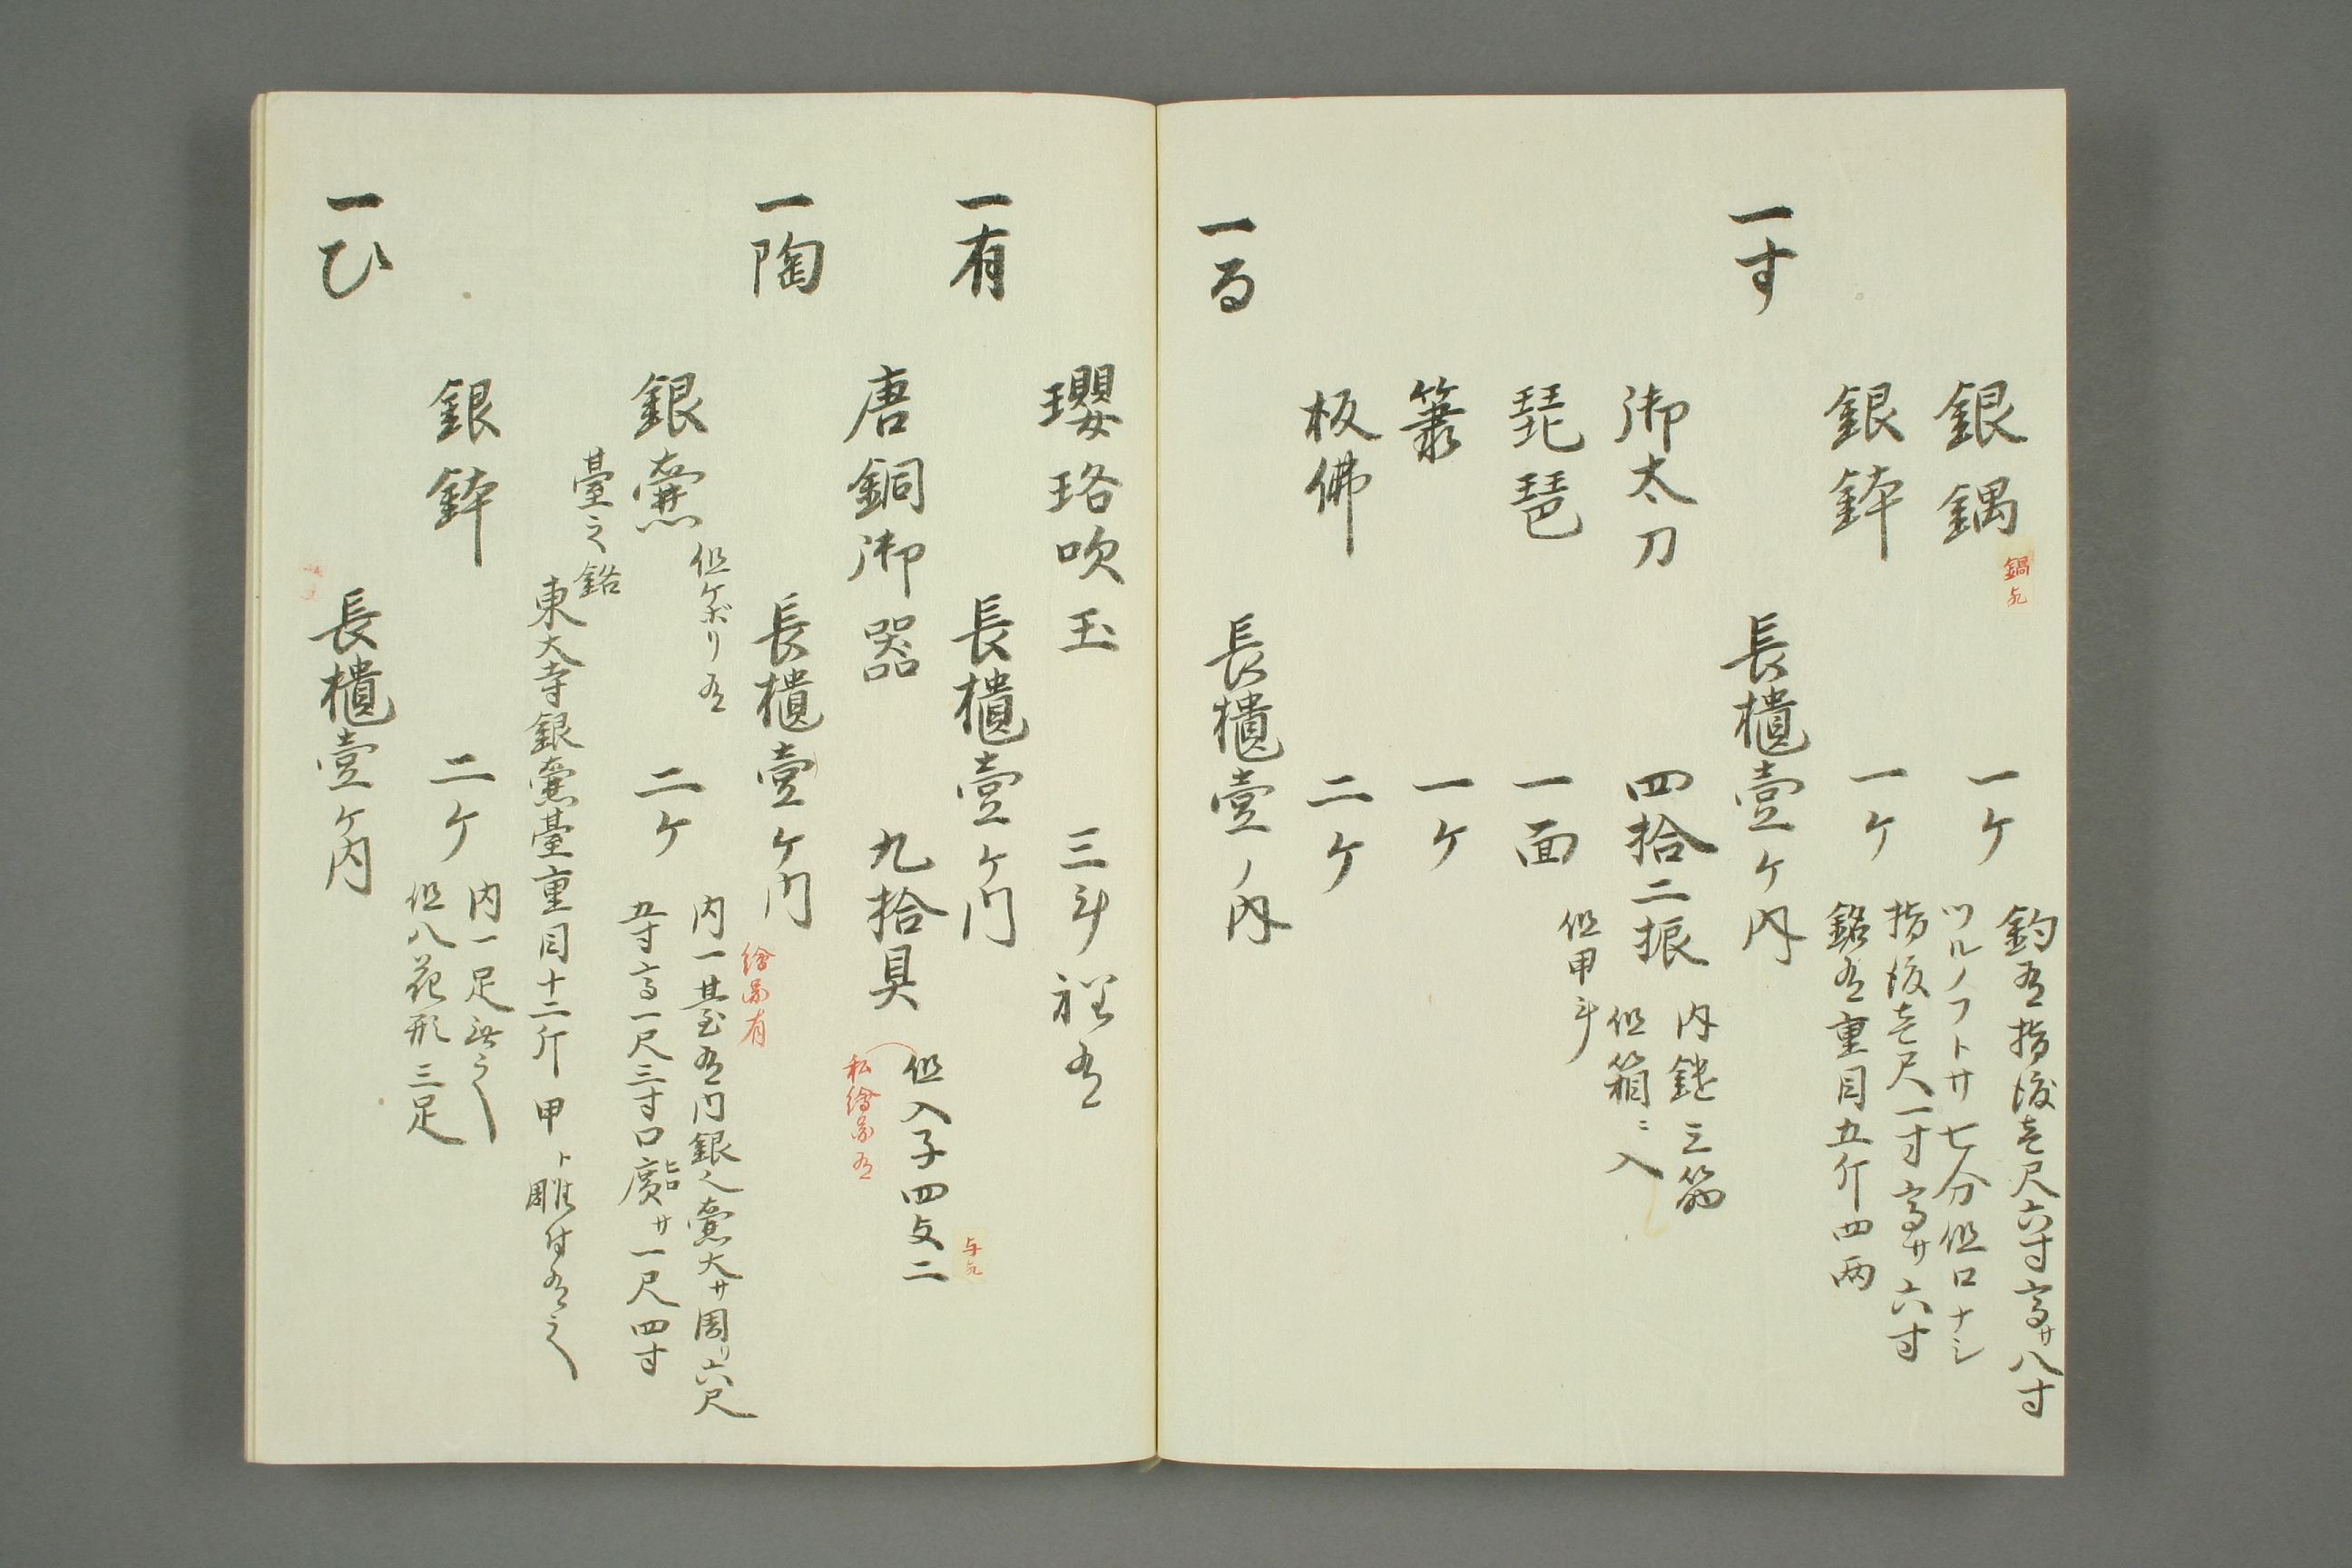 銀鍋 一ケ 釣有指渡壱尺六寸高サ八寸
ツルノフトサ七分但口ナシ
鍋
銀鉢 一ケ 指渡壱尺一寸高サ六寸
銘有重目五斤四両
一す 長櫃壹ケ内
御太刀 四拾二振 内鑓三筋
但箱ニ入
琵琶 一面 但甲斗
簺 一ケ
板佛 二ケ
一る 長櫃壹ノ内
瓔珞吹玉 三斗程有
一有 長櫃壹ケ内
唐銅御器 九拾具 但入子四与二
私繪圖有
一陶 長櫃壹ケ内
繪圖有
銀壷 但ケボリ有 二ケ 内一基台有内銀之壷大サ周リ六尺
五寸高一尺三寸口廣サ一尺四寸
臺之銘
東大寺銀壷臺重目十二斤 甲ト雕付有之
銀鉢 二ケ 内一足無之
但八花形三足
一ひ 長櫃壹ケ内